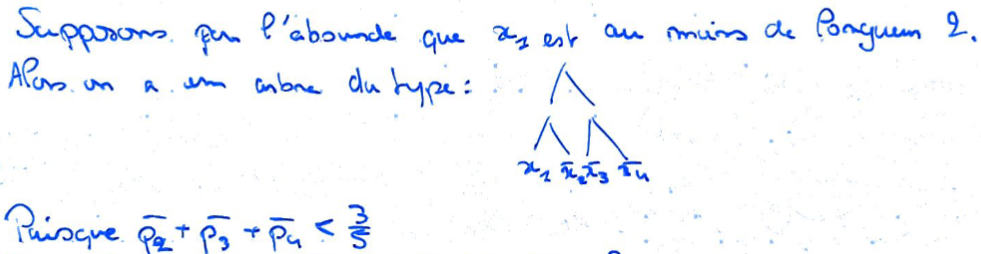 Supposons par l'absurde que x₁ est au moins de longueur 2.
Alors on a un arbre du type :
x₁ x̄₂ x̄₃ x̄₄
Puisque p̄₂ + p̄₃ + p̄₄ < 3/5